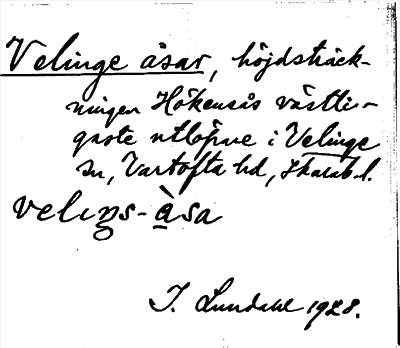 Velinge åsar, höjdsträck-
ningen Hökensås västli-
gaste utlöpare i Velinge
sn, Vartofta hd, Skarab. l.
velıŋs-àsa
I. Lundahl 1928.